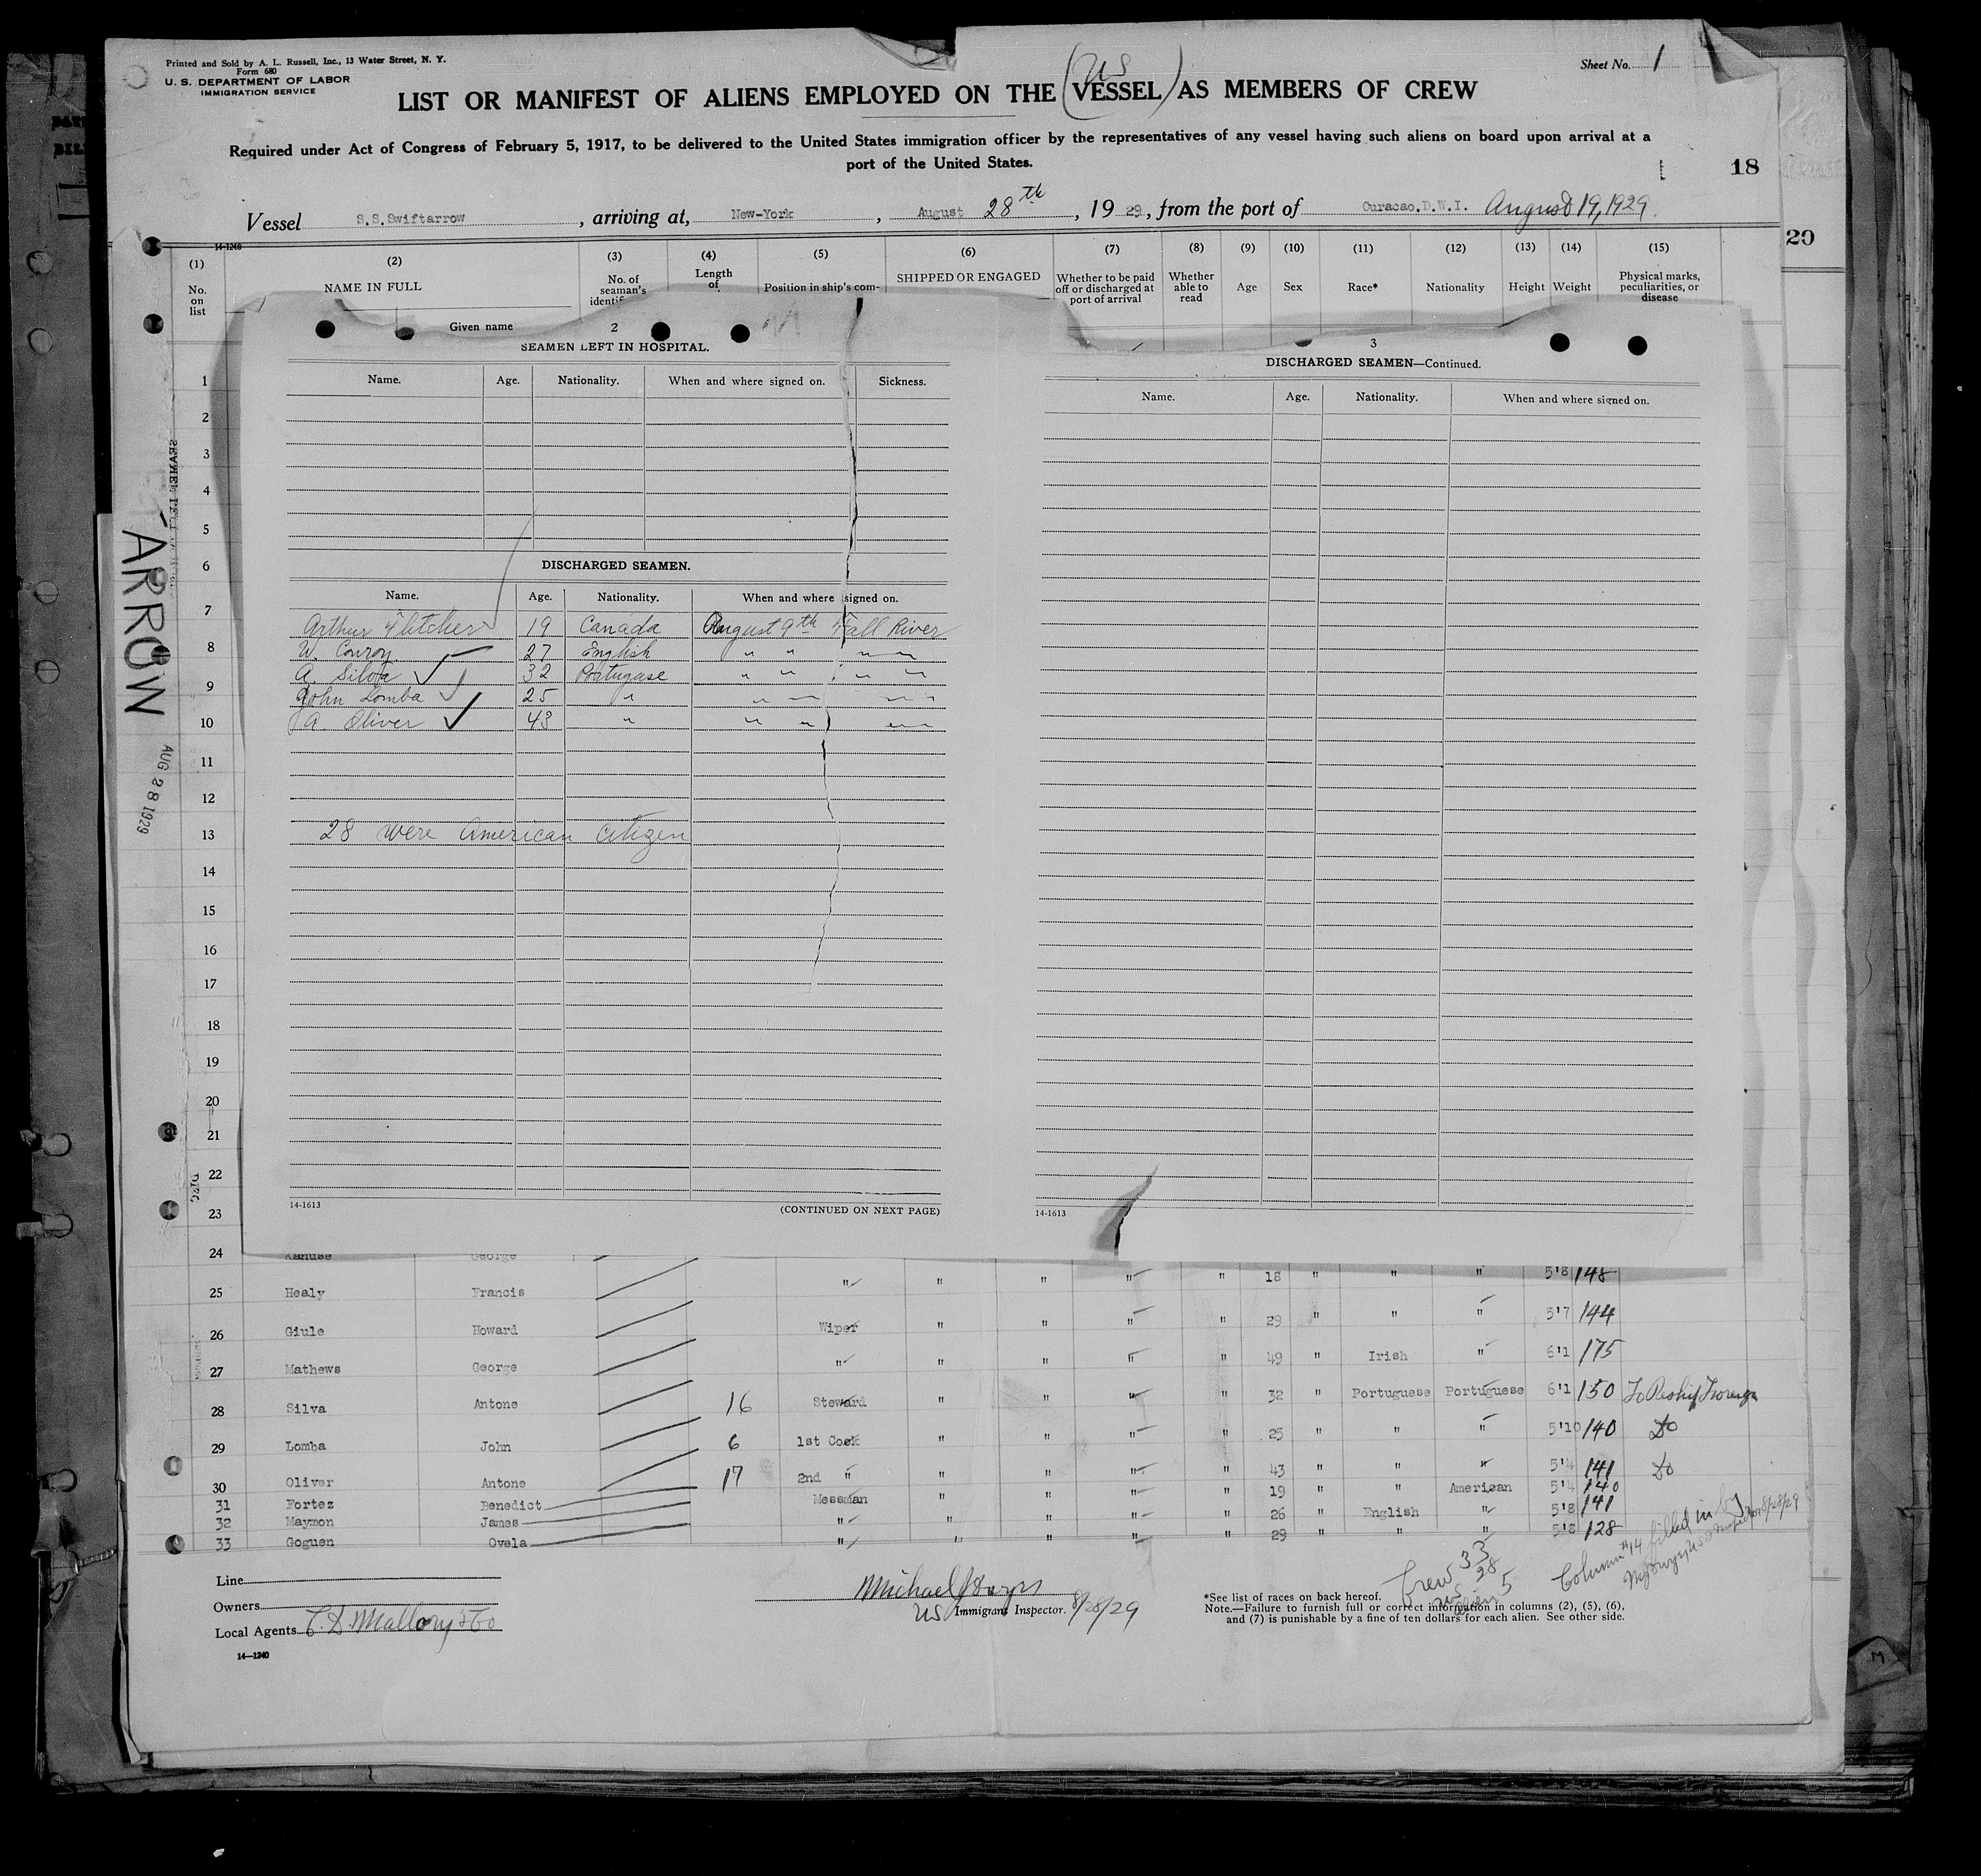 Printed and Sold by A. L. Russell, Inc., 13 Water Street, N. Y.
Form 680
U. S. DEPARTMENT OF LABOR
IMMIGRATION SERVICE
Sheet No. 1
(US)
LIST OR MANIFEST OF ALIENS EMPLOYED ON THE VESSEL AS MEMBERS OF CREW
Required under Act of Congress of February 5, 1917, to be delivered to the United States immigration officer by the representatives of any vessel having such aliens on board upon arrival at a
port of the United States.
18
Vessel S.S.Swiftarrow, arriving at, New-York, August 28th, 1929, from the port of Curacao.D.W.I. August 19, 1929.
20
14-1240
(1) (2) (3) (4) (5) (6) (7) (8) (9) (10) (11) (12) (13) (14) (15)
No. on list
NAME IN FULL
No. of seaman's
Length of
Position in ship's com-
SHIPPED OR ENGAGED
Whether to be paid off or discharged at port of arrival
Whether able to read
Age
Sex
Race*
Nationality
Height
Weight
Physical marks, peculiarities, or disease
Given name
2
SEAMEN LEFT IN HOSPITAL.
Name. Age. Nationality. When and where signed on. Sickness.
DISCHARGED SEAMEN.
Name. Age. Nationality. When and where signed on.
Arthur Fletcher 19 Canada August 9th Fall River
W. Conroy 27 English " " " "
A. Silva 32 Portugase " " " "
John Lomba 25 " " " " "
A. Oliver 43 " " " " "
28 were American citizen
14-1613
(CONTINUED ON NEXT PAGE)
3
DISCHARGED SEAMEN—Continued.
Name. Age. Nationality. When and where signed on.
14-1613
ARROW
AUG 28 1929
1
2
3
4
5
6
7
8
9
10
11
12
13
14
15
16
17
18
19
20
21
22
23
24 George
25 Healy Francis " " " " " 18 " " " 5'8 148
26 Giule Howard Wiper " " " " 29 " " " 5'7 144
27 Mathews George " " " " " 49 " Irish " 6'1 175
28 Silva Antone 16 Steward " " " " 32 " Portuguese Portuguese 6'1 150 To Reship Foreign
29 Lomba John 6 1st Cook " " " " 25 " " " 5'10 140 Do
30 Oliver Antone 17 2nd " " " " " 43 " " " 5'4 141 Do
31 Fortez Benedict Messman " " " " 19 " " American 5'4 140
32 Maymon James " " " " " 26 " English " 5'8 141
33 Goguen Ovela " " " " " 29 " " " 5'8 128
Line
Owners
Local Agents C. D. Mallory & Co
14—1240
US Immigrant Inspector. 8/28/29
*See list of races on back hereof.
Note.—Failure to furnish full or correct information in columns (2), (5), (6),
and (7) is punishable by a fine of ten dollars for each alien. See other side.
Crew 33
US 28
aliens 5
Column #14 filled in by
8/28/29